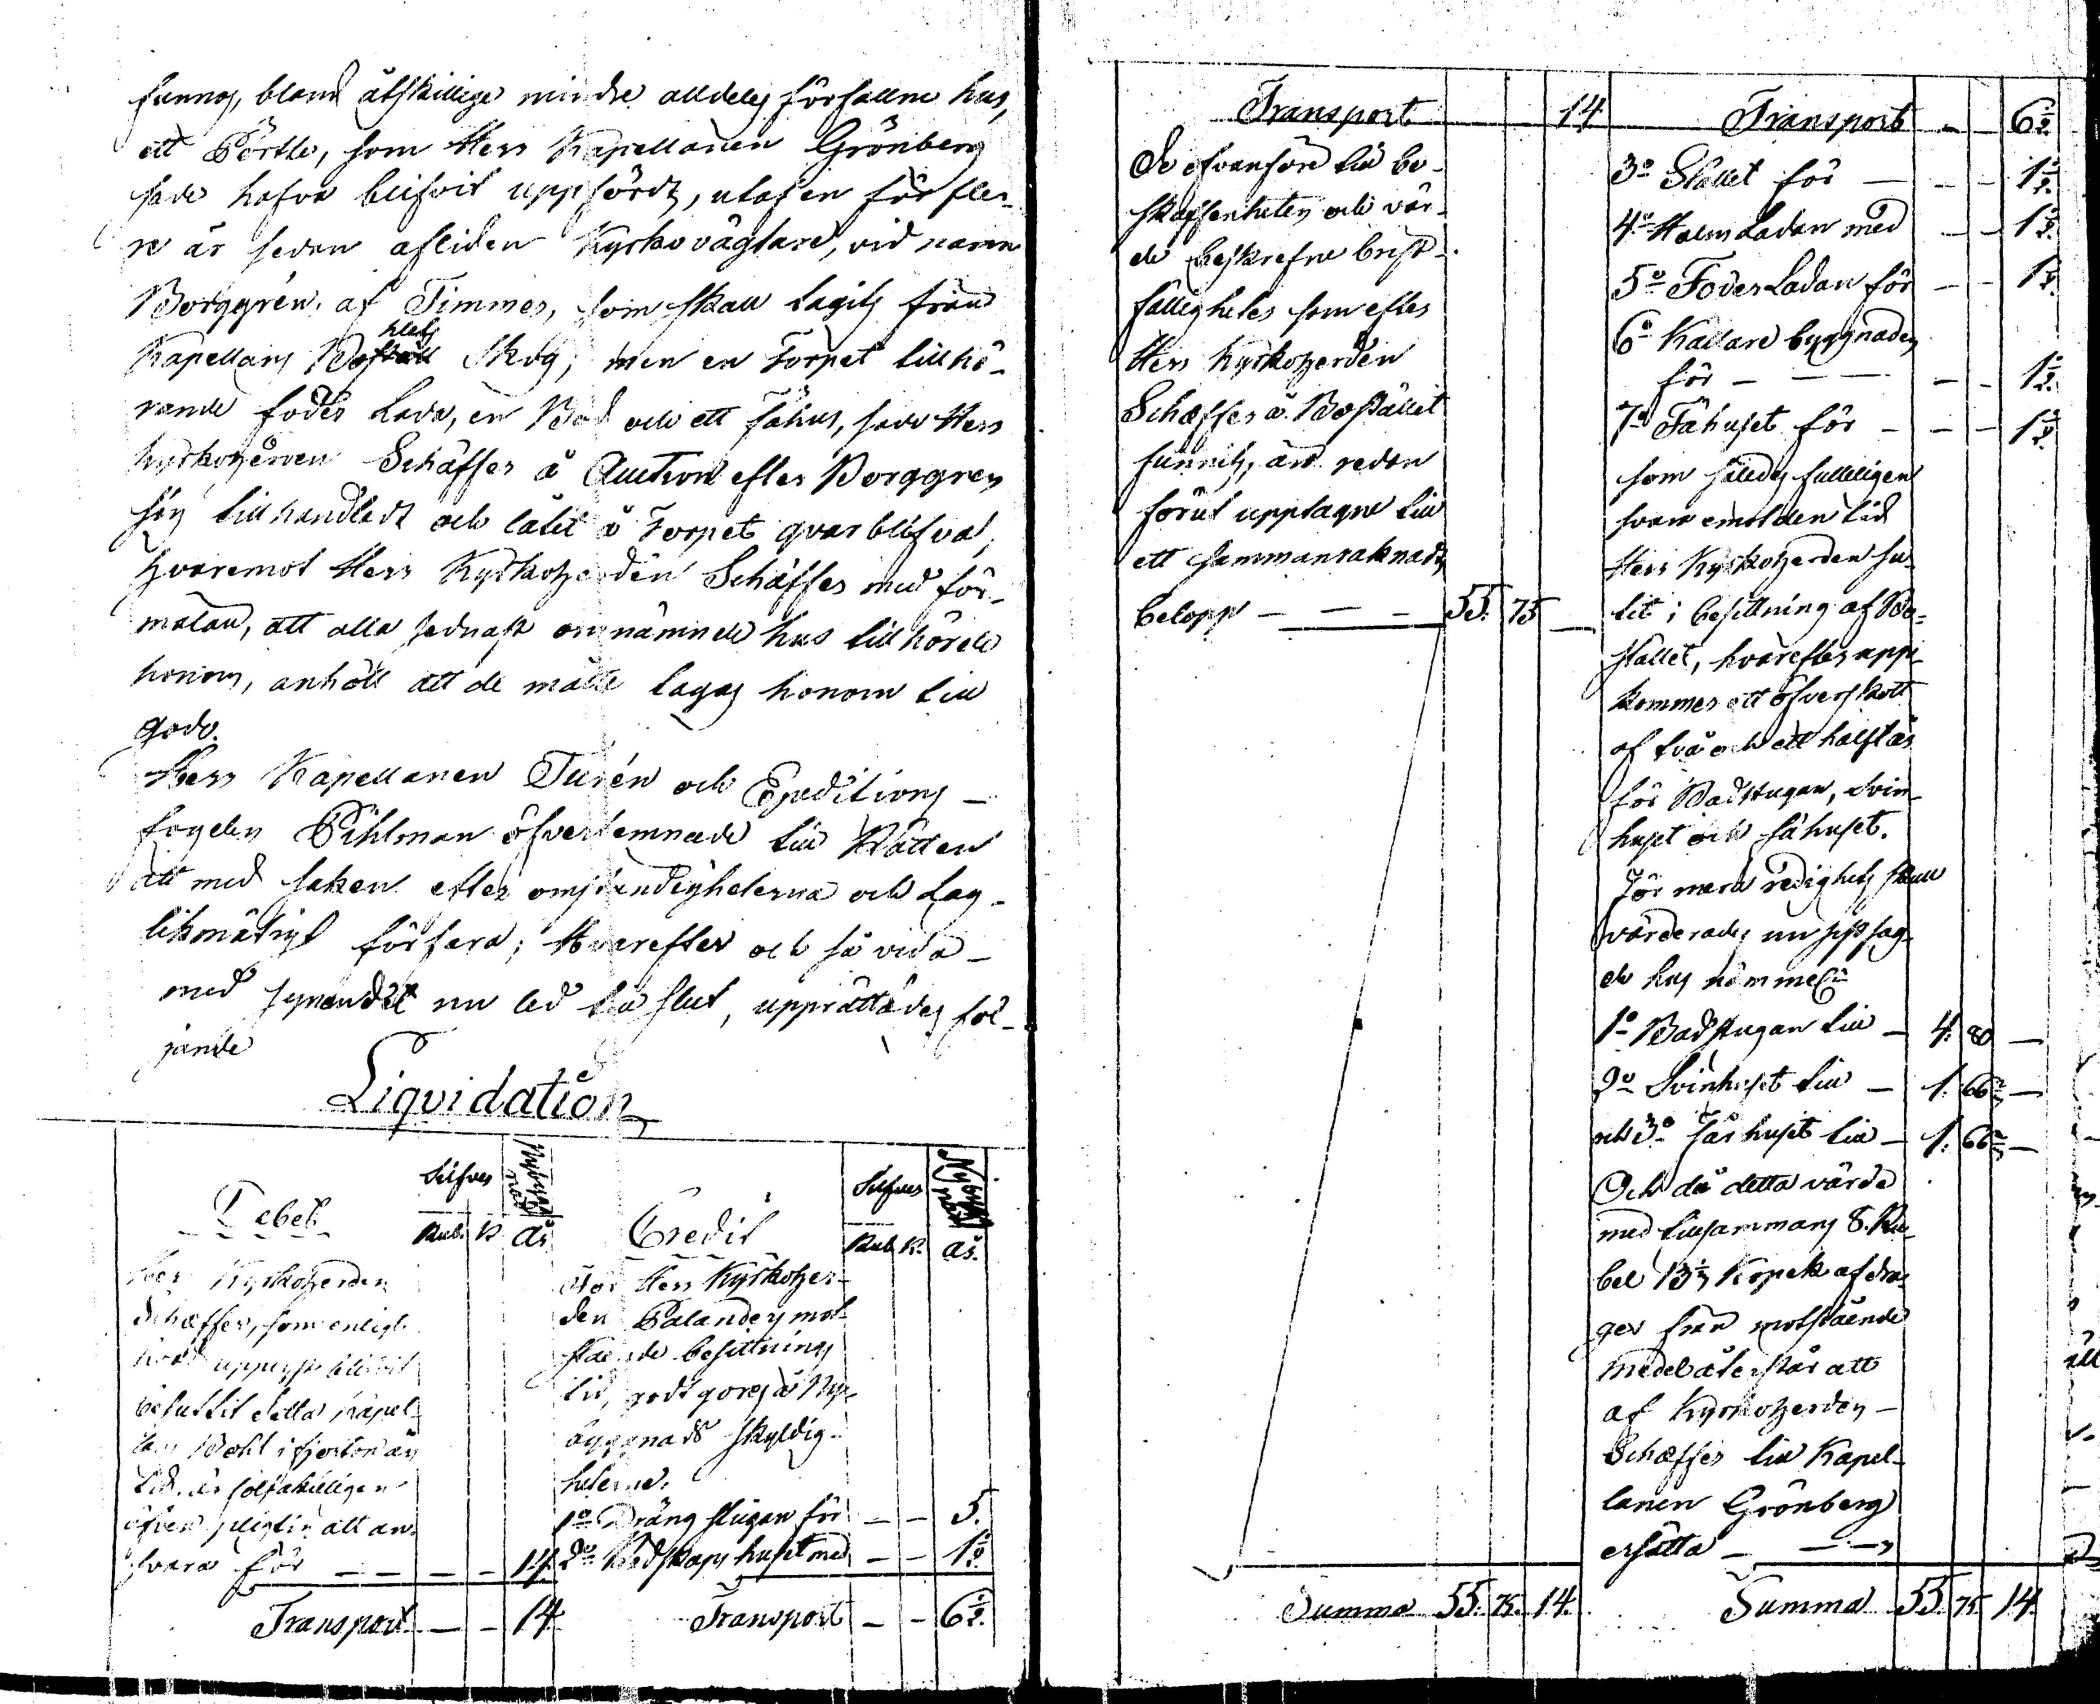 funnos, bland åtskillige mindre alldeles förfallne hus,
ett Pörtte, som Herr Kapellanen Grönberg
sade hafva blifvit uppfördt, utaf en för fler-
re år sedan afliden Kyrkovägtare, vid namn
Borggrén, af Timmer, som skall tagits från
Kapellans Bohlets Skog; men en Torpet tillhö-
rande foder Lada, en Bod och ett fähus, sade Herr
Kyrkoherden Schæffer å Auction efter Borggren
sig tillhandladt och låtit å Torpet qvarblifva;
hvaremot Herr Kyrkoherden Schæffer med för-
mälan, att alla sednast omnämnde hus tillhörde
honom, anhöll att de måtte tagas honom till
godo.
Herr Kapellanen Turén och Expeditions-
fogden Pihlman öfverlemnade till Rätten
att med saken efter omständigheterna och Lag-
likmätigt förfara; Hvarefter och så vida
med synandet nu led till slut, upprättades föl-
jande
Liquidation
Debet
Silfver
Nybyggnad
Rub. K. år
Credit
Silfver
Nybyggnad
Rub. K. år.
Herr Kyrkoherden
Schæffer, som enligt
hvad upplyst blifvit
besuttit detta Kapel-
lans Bohl i fjorton års
tid, är
äfven pligtig att an-
svara för — — — — 14.
Transport — — 14.
För Herr Kyrkoher-
den Palanders mot-
stående besittnings
tid, godtgöres å Ny-
byggnads skyldig-
heterne.
1o Drängstugan för — — 5.
2o Redskapshuset med — — 1½
Transport — — 6½.
Transport 14
De ofvanföre till be-
skaffenheten och vär-
de beskrefne brist-
fälligheter som efter
Herr Kyrkoherden
Schæffer å Bostället
funnits, äro redan
förut upptagne till
ett sammanräknadt
belopp — — — 55. 75 —
Summa 55. 75. 14.
Transport — — 6½.
3o Stallet för — — — 1½.
4o Halmladan med — — 1½.
5o FoderLadan för — — 1½.
6o Källare byggnaden
för — — — — — 1½.
7o Fähuset för — — — 1½
som således fulleligen
svara emot den tid
Herr Kyrkoherden su-
tit i besittning af Bo-
stället, hvarefter upp-
kommer ett öfverskott
af två och ett halft år
för Badstugan, Svin-
huset och fåhuset.
För mera redighets skull
värderades nu sistsag-
de hus nämmel:n
1o Badstugan till — 4. 80 —
2o Svinhuset till — 1. 66⅔ —
och 3o Fårhuset till — 1. 66⅔ —
Och då detta värde
med tillsammans 8. Ru-
bel 13⅓ Kopek afdra-
ges från motstående
medel återstår att
af Kyrkoherden
Schæffer till Kapel-
lanen Grönberg
ersätta — — —
Summa 55 75 14.